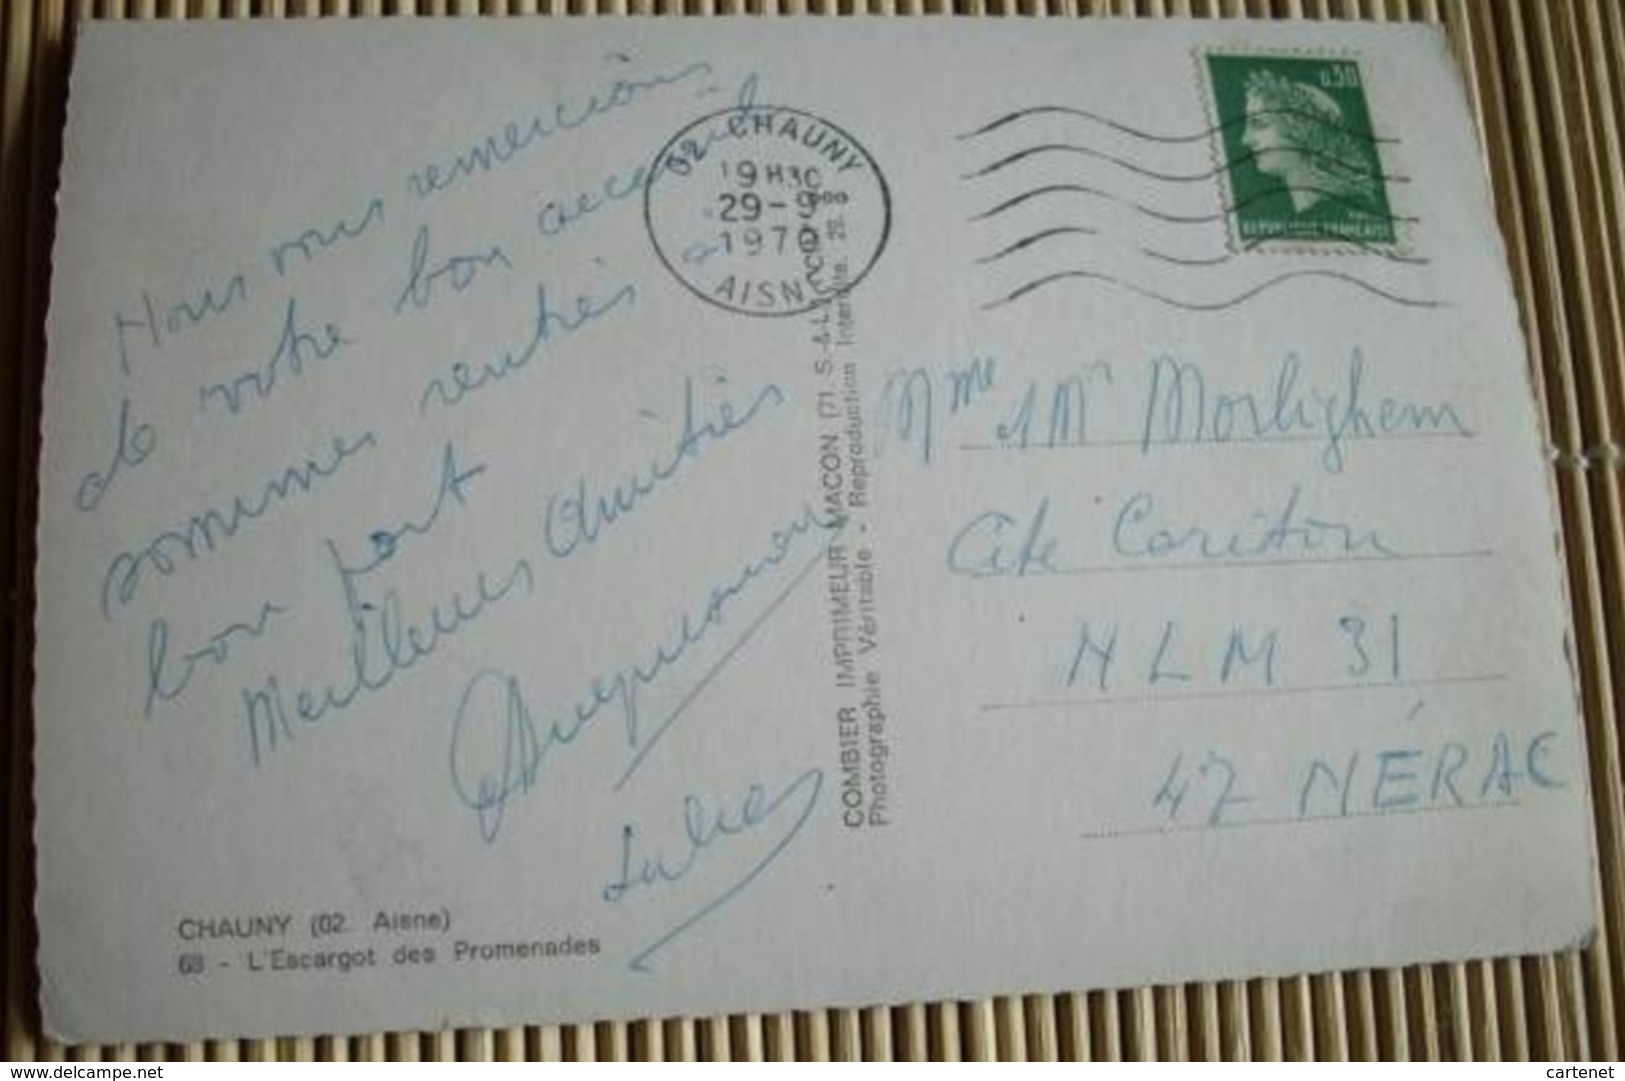 Nous vous remercions
de votre bon accueil
sommes rentrés à
bon port
Meilleures Amitiés
CHAUNY (02. Aisne)
63 - L'Escargot des Promenades
02 CHAUNY
19H30
29-9
1970
AISNE
COMBIER IMPRIMEUR MACON (71. S.-&-L.)
Photographie Véritable - Reproduction Interdite.
0,50
REPUBLIQUE FRANÇAISE
Mme Mr Morlighem
Cité Cariton
HLM 31
47 NÉRAC
www.delcampe.net
cartenet